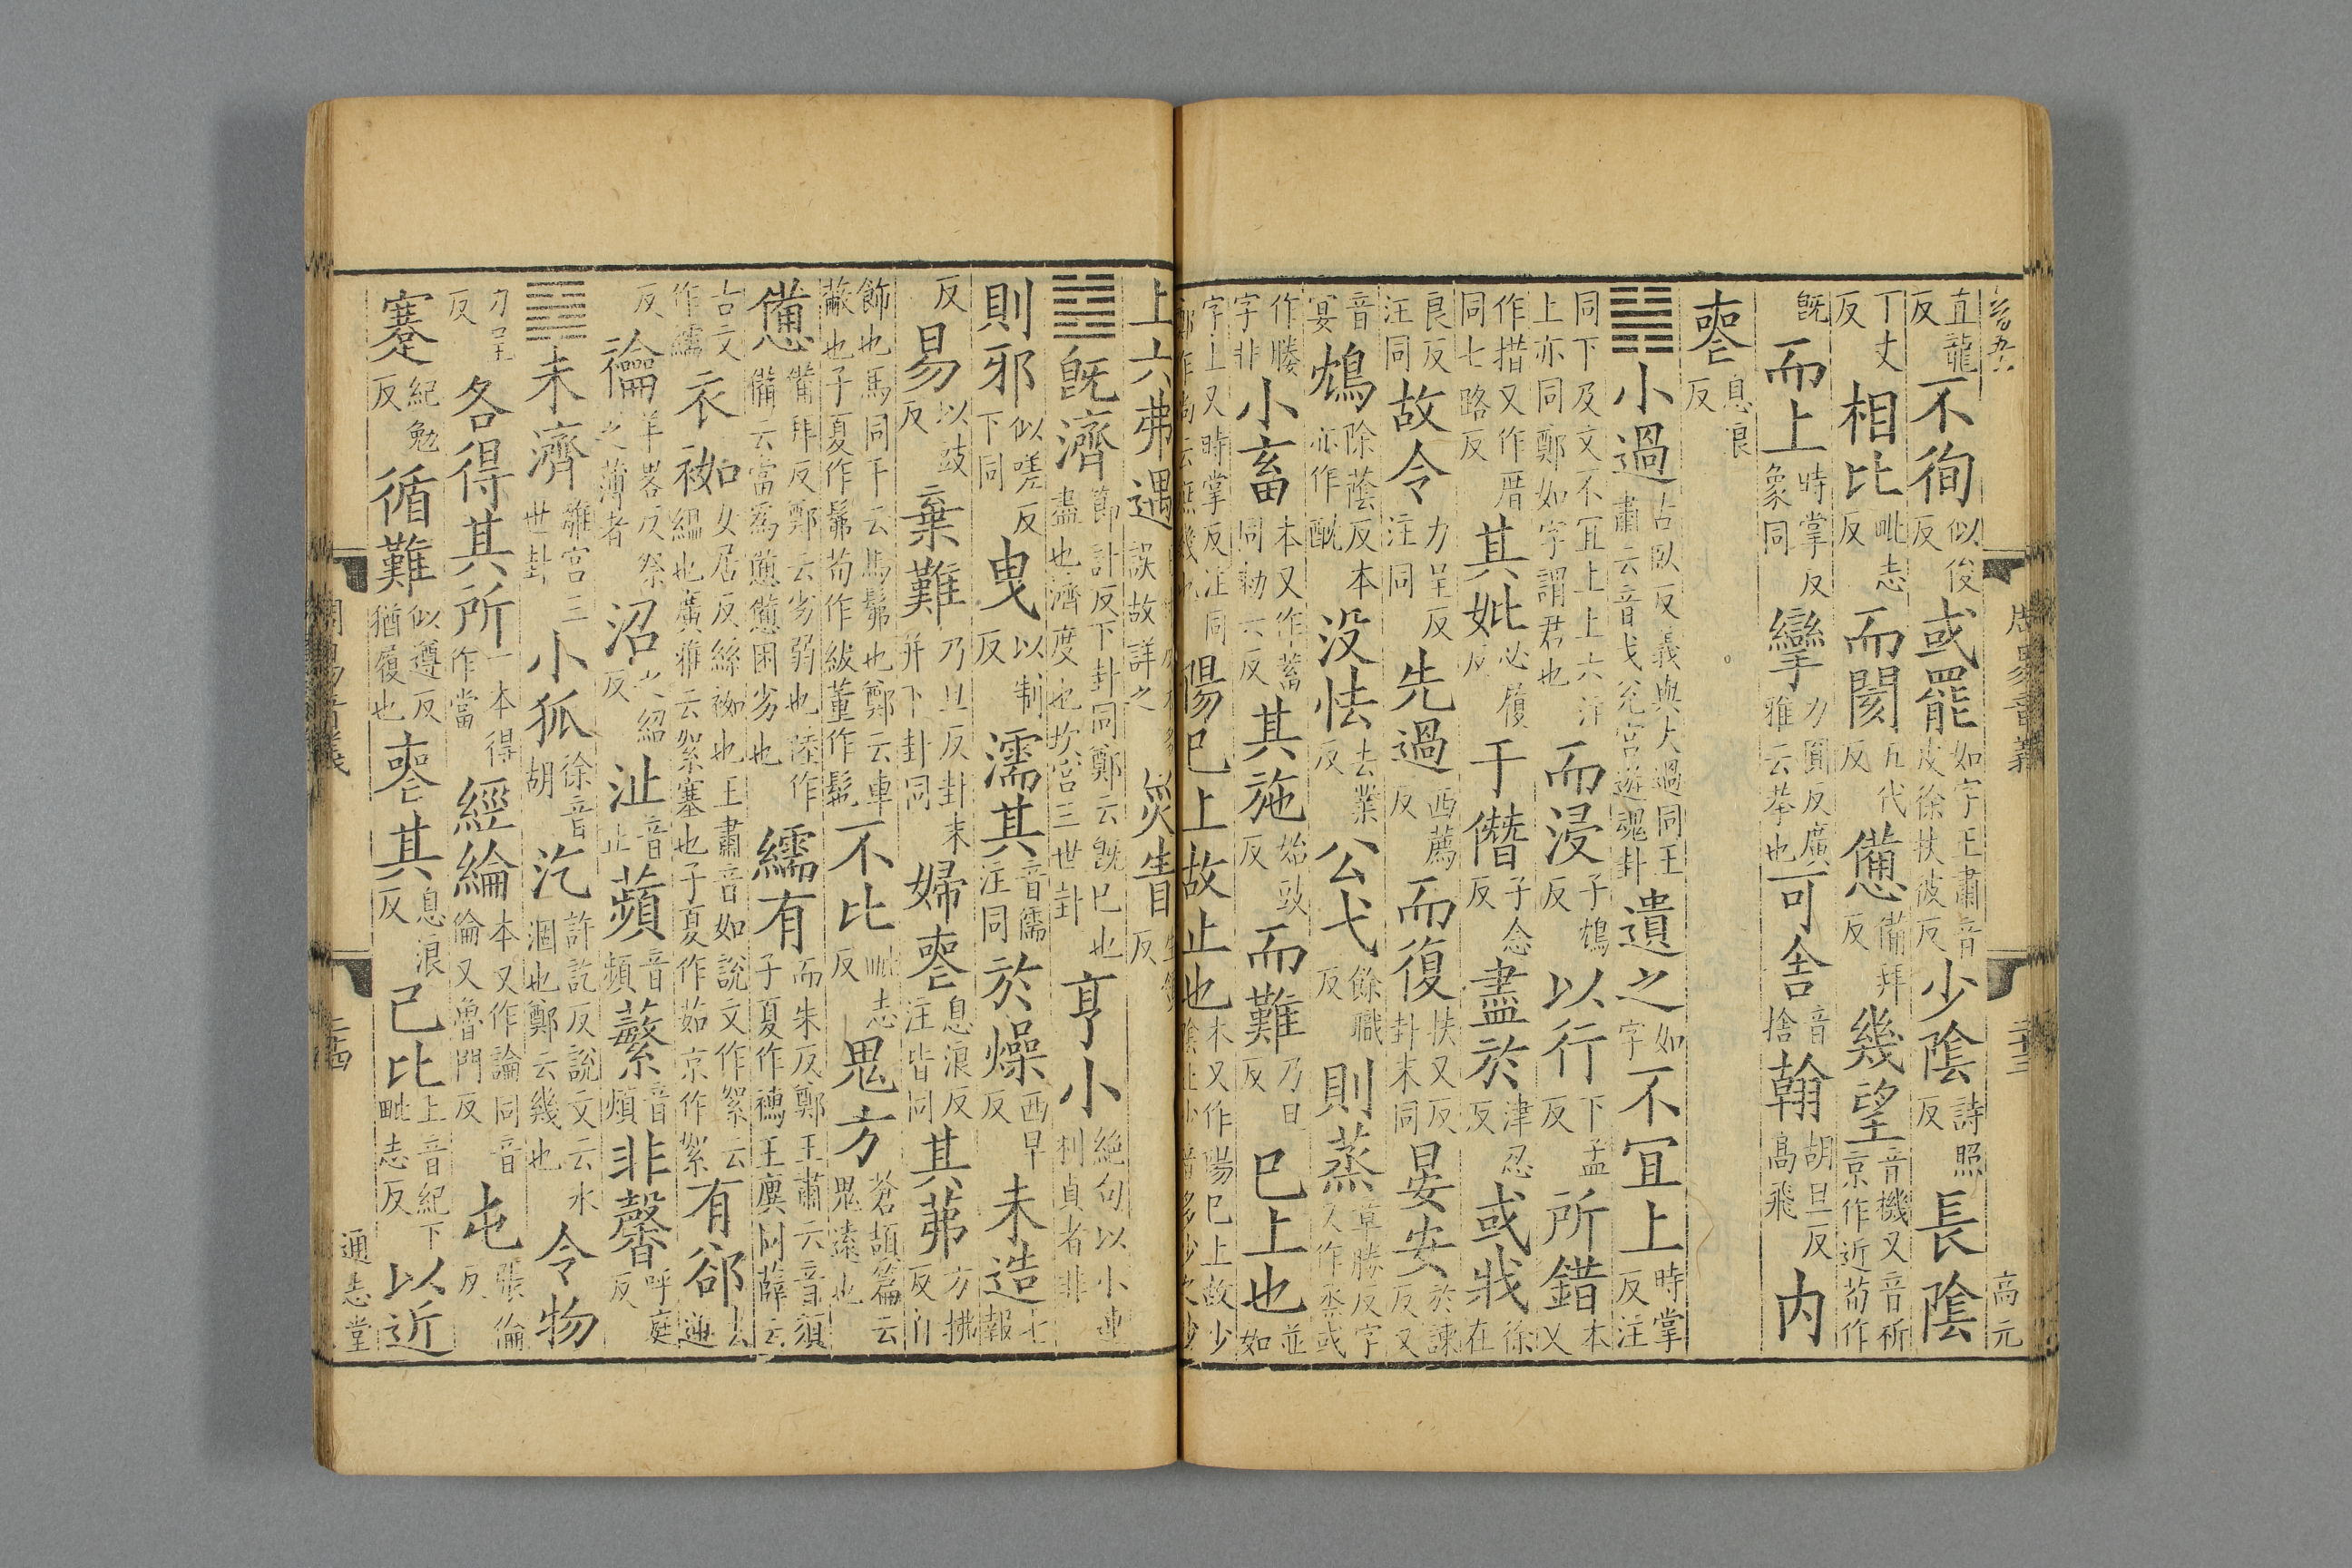 周易音義
高元
直龍反不徇似俊反或罷如字王肅音皮徐扶彼反少陰詩照反長陰
丁丈反相比毗志反而閡五代反憊備拜反幾望音機又音祈京作近荀作
旣而上時掌反象同攣力圓反廣雅云拳也可舍音捨翰胡旦反高飛內
喪息浪反
小過古臥反義與大過同王肅云音戈兌宮遊魂卦遺之如字不冝上時掌反注
同下及文不冝上上六注上亦同鄭如字謂君也而浸子鴆反以行下孟反所錯本又
作措又作厝同七路反其妣必履反于僭子念反盡於津忍反或戕徐在
良反注同故令力呈反注同先過西薦反而復扶又反卦末同晏安於諫反又
音宴鴆除蔭反本亦作酖没怯去業反公弋餘職反則蒸章勝反字又作烝或
作䕝字非小畜本又作蓄同勑六反其施始豉反而難乃旦反巳上也並如
字上又時掌反注同陽巳上故止也本又作陽巳上故少
上六弗遇誤故詳之災眚反
旣濟節計反下卦同鄭云旣巳也盡也濟度也坎宮三世卦亨小絶句以小連利貞者非
則邪似嗟反下同曳以制反濡其音儒注同於燥西早反未造七報
反易以豉反棄難乃旦反卦末并下卦同婦喪息浪反注皆同其茀方拂反
飾也馬同干云馬髴也鄭云車蔽也子夏作髴荀作紱董作髢不比毗志反鬼方蒼頡篇云鬼遠也
憊備拜反鄭云劣弱也陸作備云當爲憊憊困劣也繻有而朱反鄭王肅云音須子夏作襦王廙同薛云
古文作繻衣袽女居反絲袽也王肅音如說文作絮云緼也廣雅云絮塞也子夏作茹京作絮有郤去逆
反禴羊畧反祭之薄者沼之紹反沚音止蘋音頻蘩音煩非馨呼庭反
未濟離宮三世卦小狐徐音胡汔許訖反說文云水涸也鄭云幾也令物
力呈反各得其所一本得作當經綸本又作論同音倫又魯門反屯張倫反
蹇紀勉反循難似遵反猶履也喪其息浪反己比上音紀下毗志反以近
通志堂